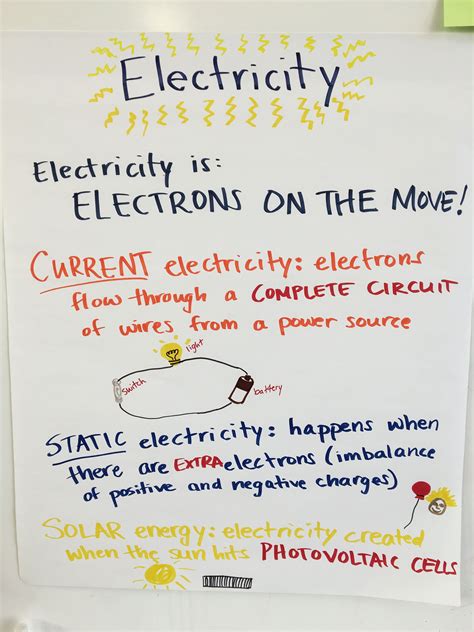 Electricity
Electricity is:
ELECTRONS ON THE MOVE!
CURRENT electricity: electrons
flow through a COMPLETE CIRCUIT
of wires from a power source
light
switch
battery
STATIC electricity: happens when
there are EXTRA electrons (imbalance
of positive and negative charges)
SOLAR energy: electricity created
when the sun hits PHOTOVOLTAIC CELLS